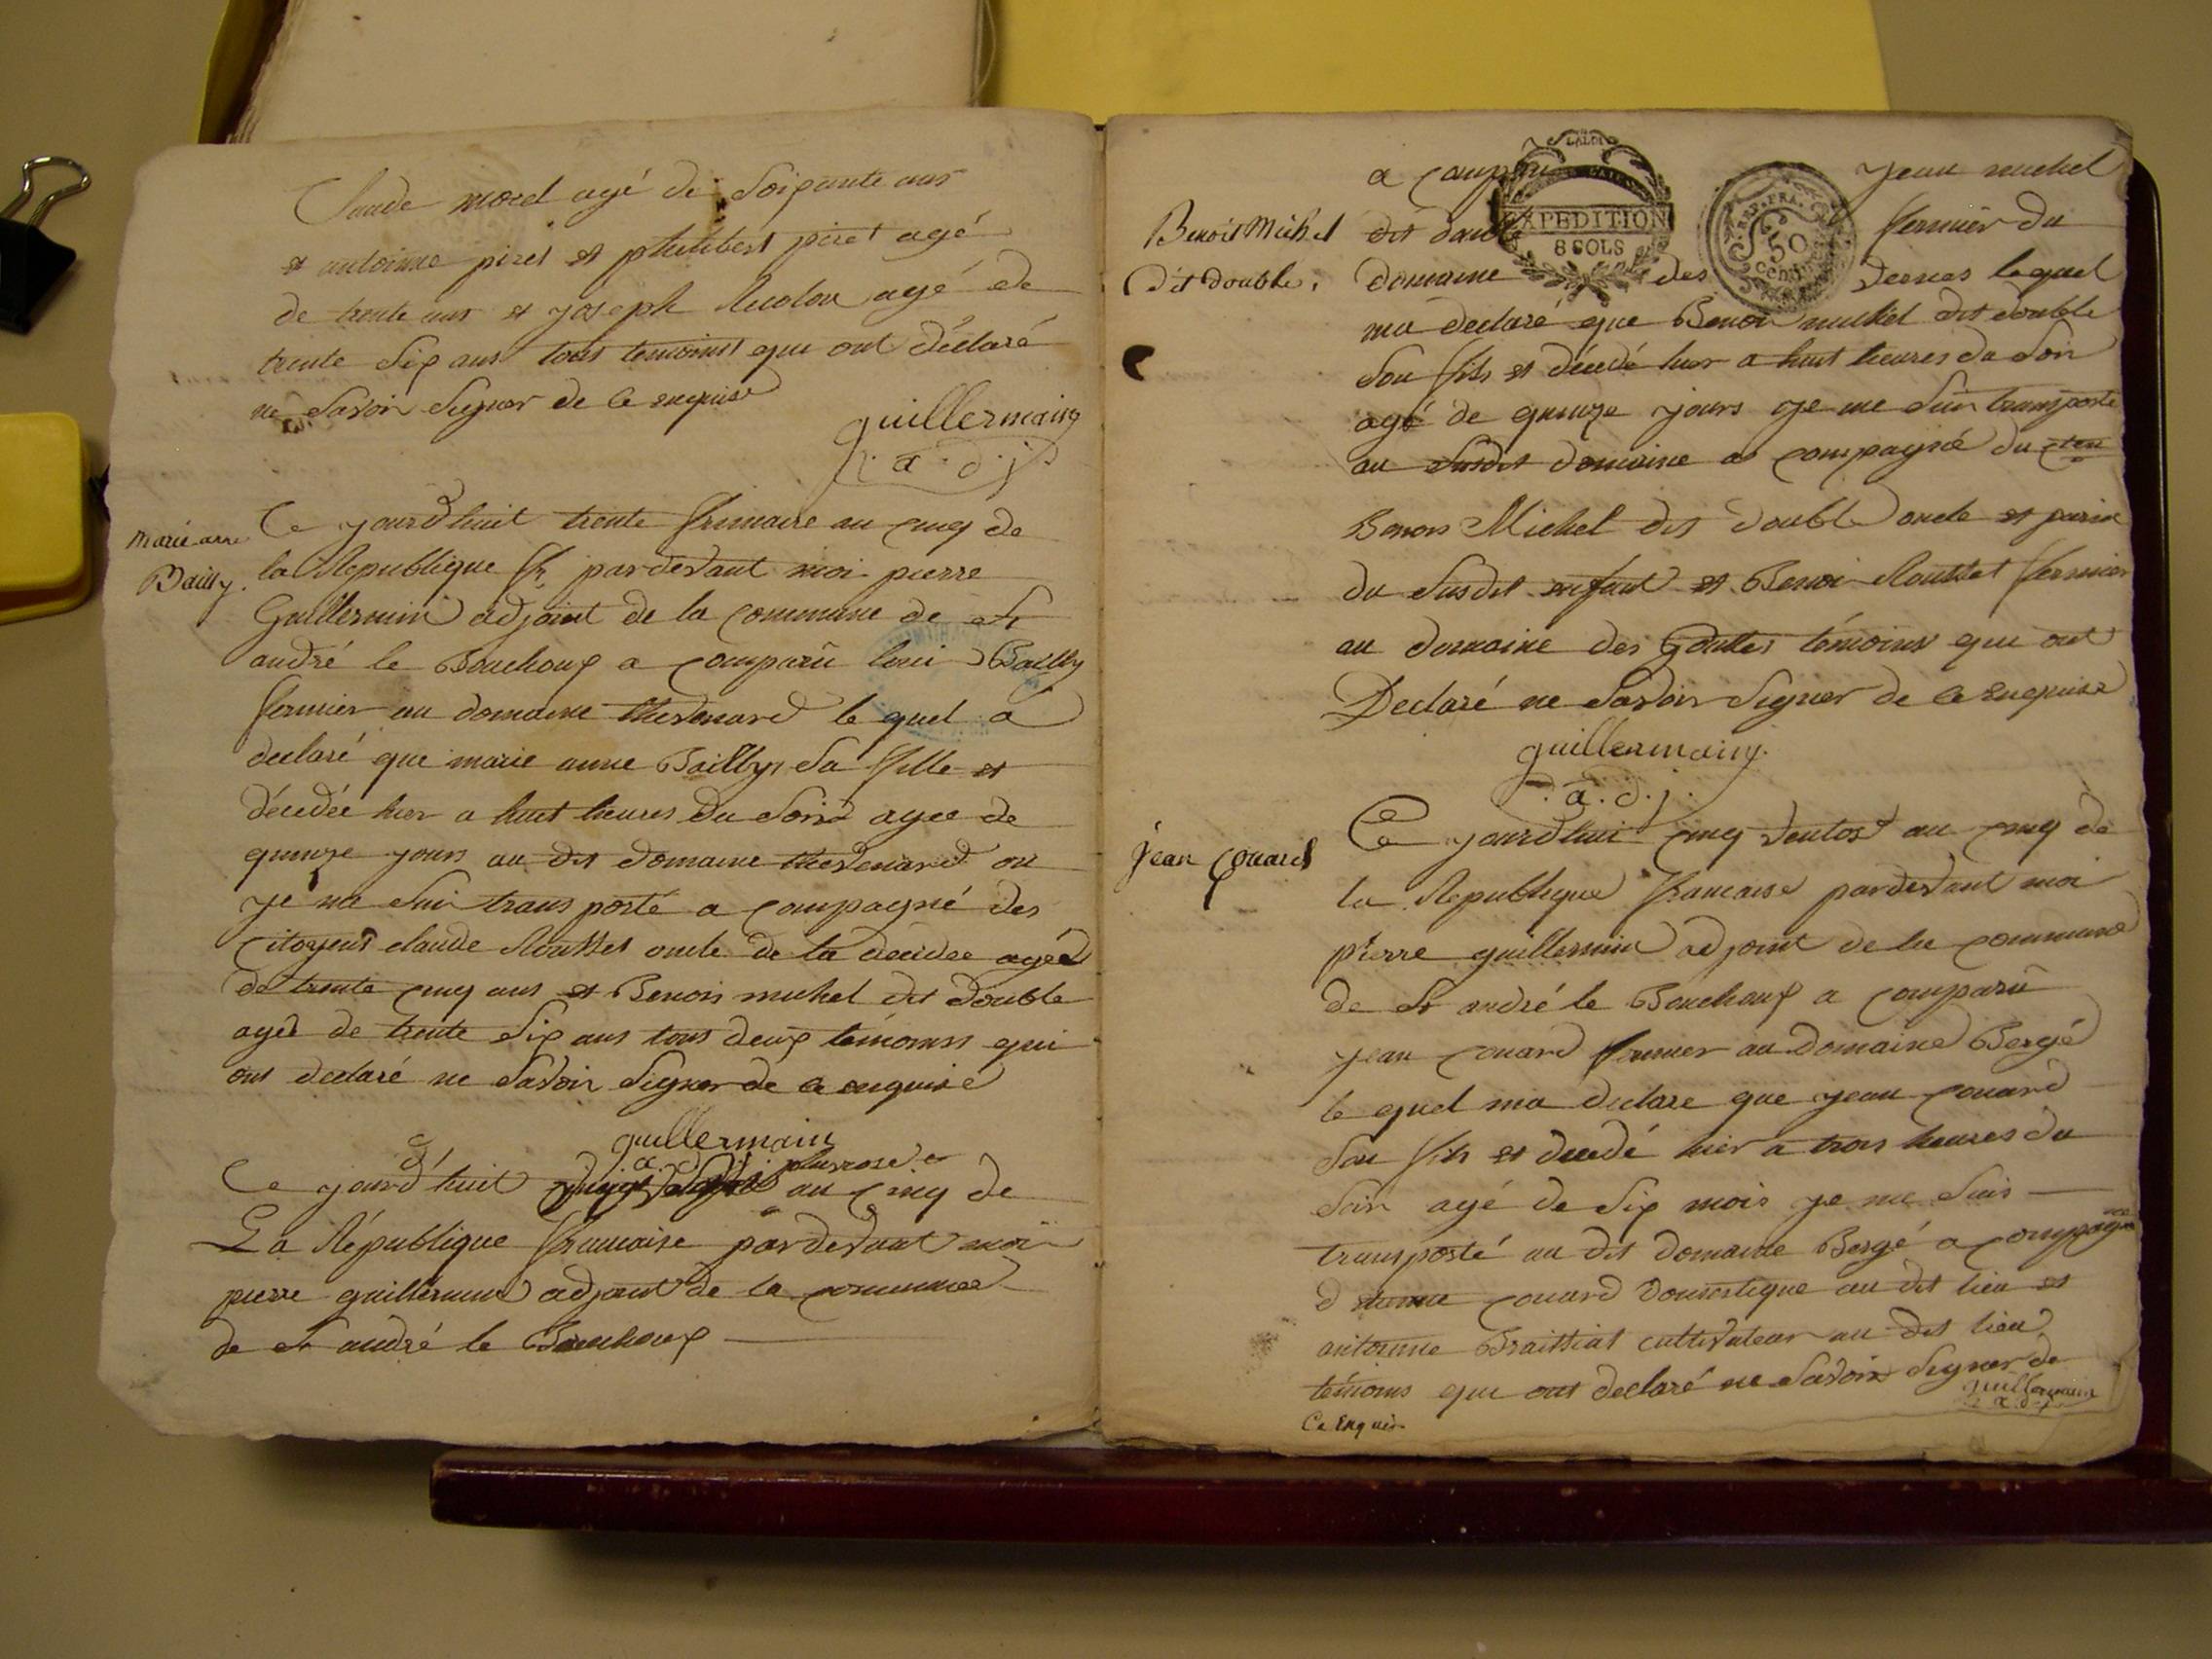 Claude morel agé de Soixante ans
et antoinne piret et philibert piret agé
de trente ans et joseph agé de
trente Six ans tous temoinst qui ont déclaré
ne Savoir Signer de ce enquise
guillermain
a. d. j.
marie anne
Bailly.
Ce jourd'huit trente frimaire an cinq de
la Republique fr, pardevant moi pierre
Guillermin adjoint de la commune de St
andré le Bouchoux a comparû loui Bailly
fermier au domaine thevenard le quel a
declaré que marie anne Bailly, Sa fille et
décedée hier a huit heures du Soird agee de
quinze jours au dit domaine thevenard ou
je me Suis transporté a compagné des
Citoyens claude Rousset oncle de la décédee agée
de trente cinq ans et Benois michel dit double
agée de trente Six ans tous deux témoinss qui
ont declaré ne Savoir Signer de ce enquise
guillermain
a. d. j.
Ce jourd'huit pluviose an cinq de
La République francaise pardevant moi
pierre guillermin adjoint de la commune
de St andré le Bouchoux
LA LOI
EXPEDITION
8 SOLS
REP. FRA.
50
centimes
a comparu jean michel
Benoit Michel
dit double.
dit double fermier du
domaine des vernes lequel
ma declaré que Benoi michel dit double
Son fils et décedé hier a huit heures du Soir
agé de quinze jours je me Suis transporté
au Susdit domaine a compagné du cten
Benois Michel dit double oncle et parin
du Susdit enfant et Benoi Rousset fermier
au domaine des Gouttes témoins qui ont
Declaré ne Savoir Signer de ce enquise
guillermain
a. d. j.
jean Couard
Ce jourd'hui cinq ventos an cinq de
la Republique francaise pardevant moi
pierre guillermin adjoint de la commune
de St andré le Bouchoux a comparû
jean couard fermier au domaine Bergé
le quel ma declare que jean couard
Son fils et decedé hier a trois heures du
Soir agé de Six mois je me Suis
transporté au dit domaine Bergé a compagné
d couard domestique au dit lieu et
antoinne Braissiat cultivateur au dit lieu
témoins qui ont declaré ne Savoir Signer de
Ce Enquis
guillermain
a. d. j.